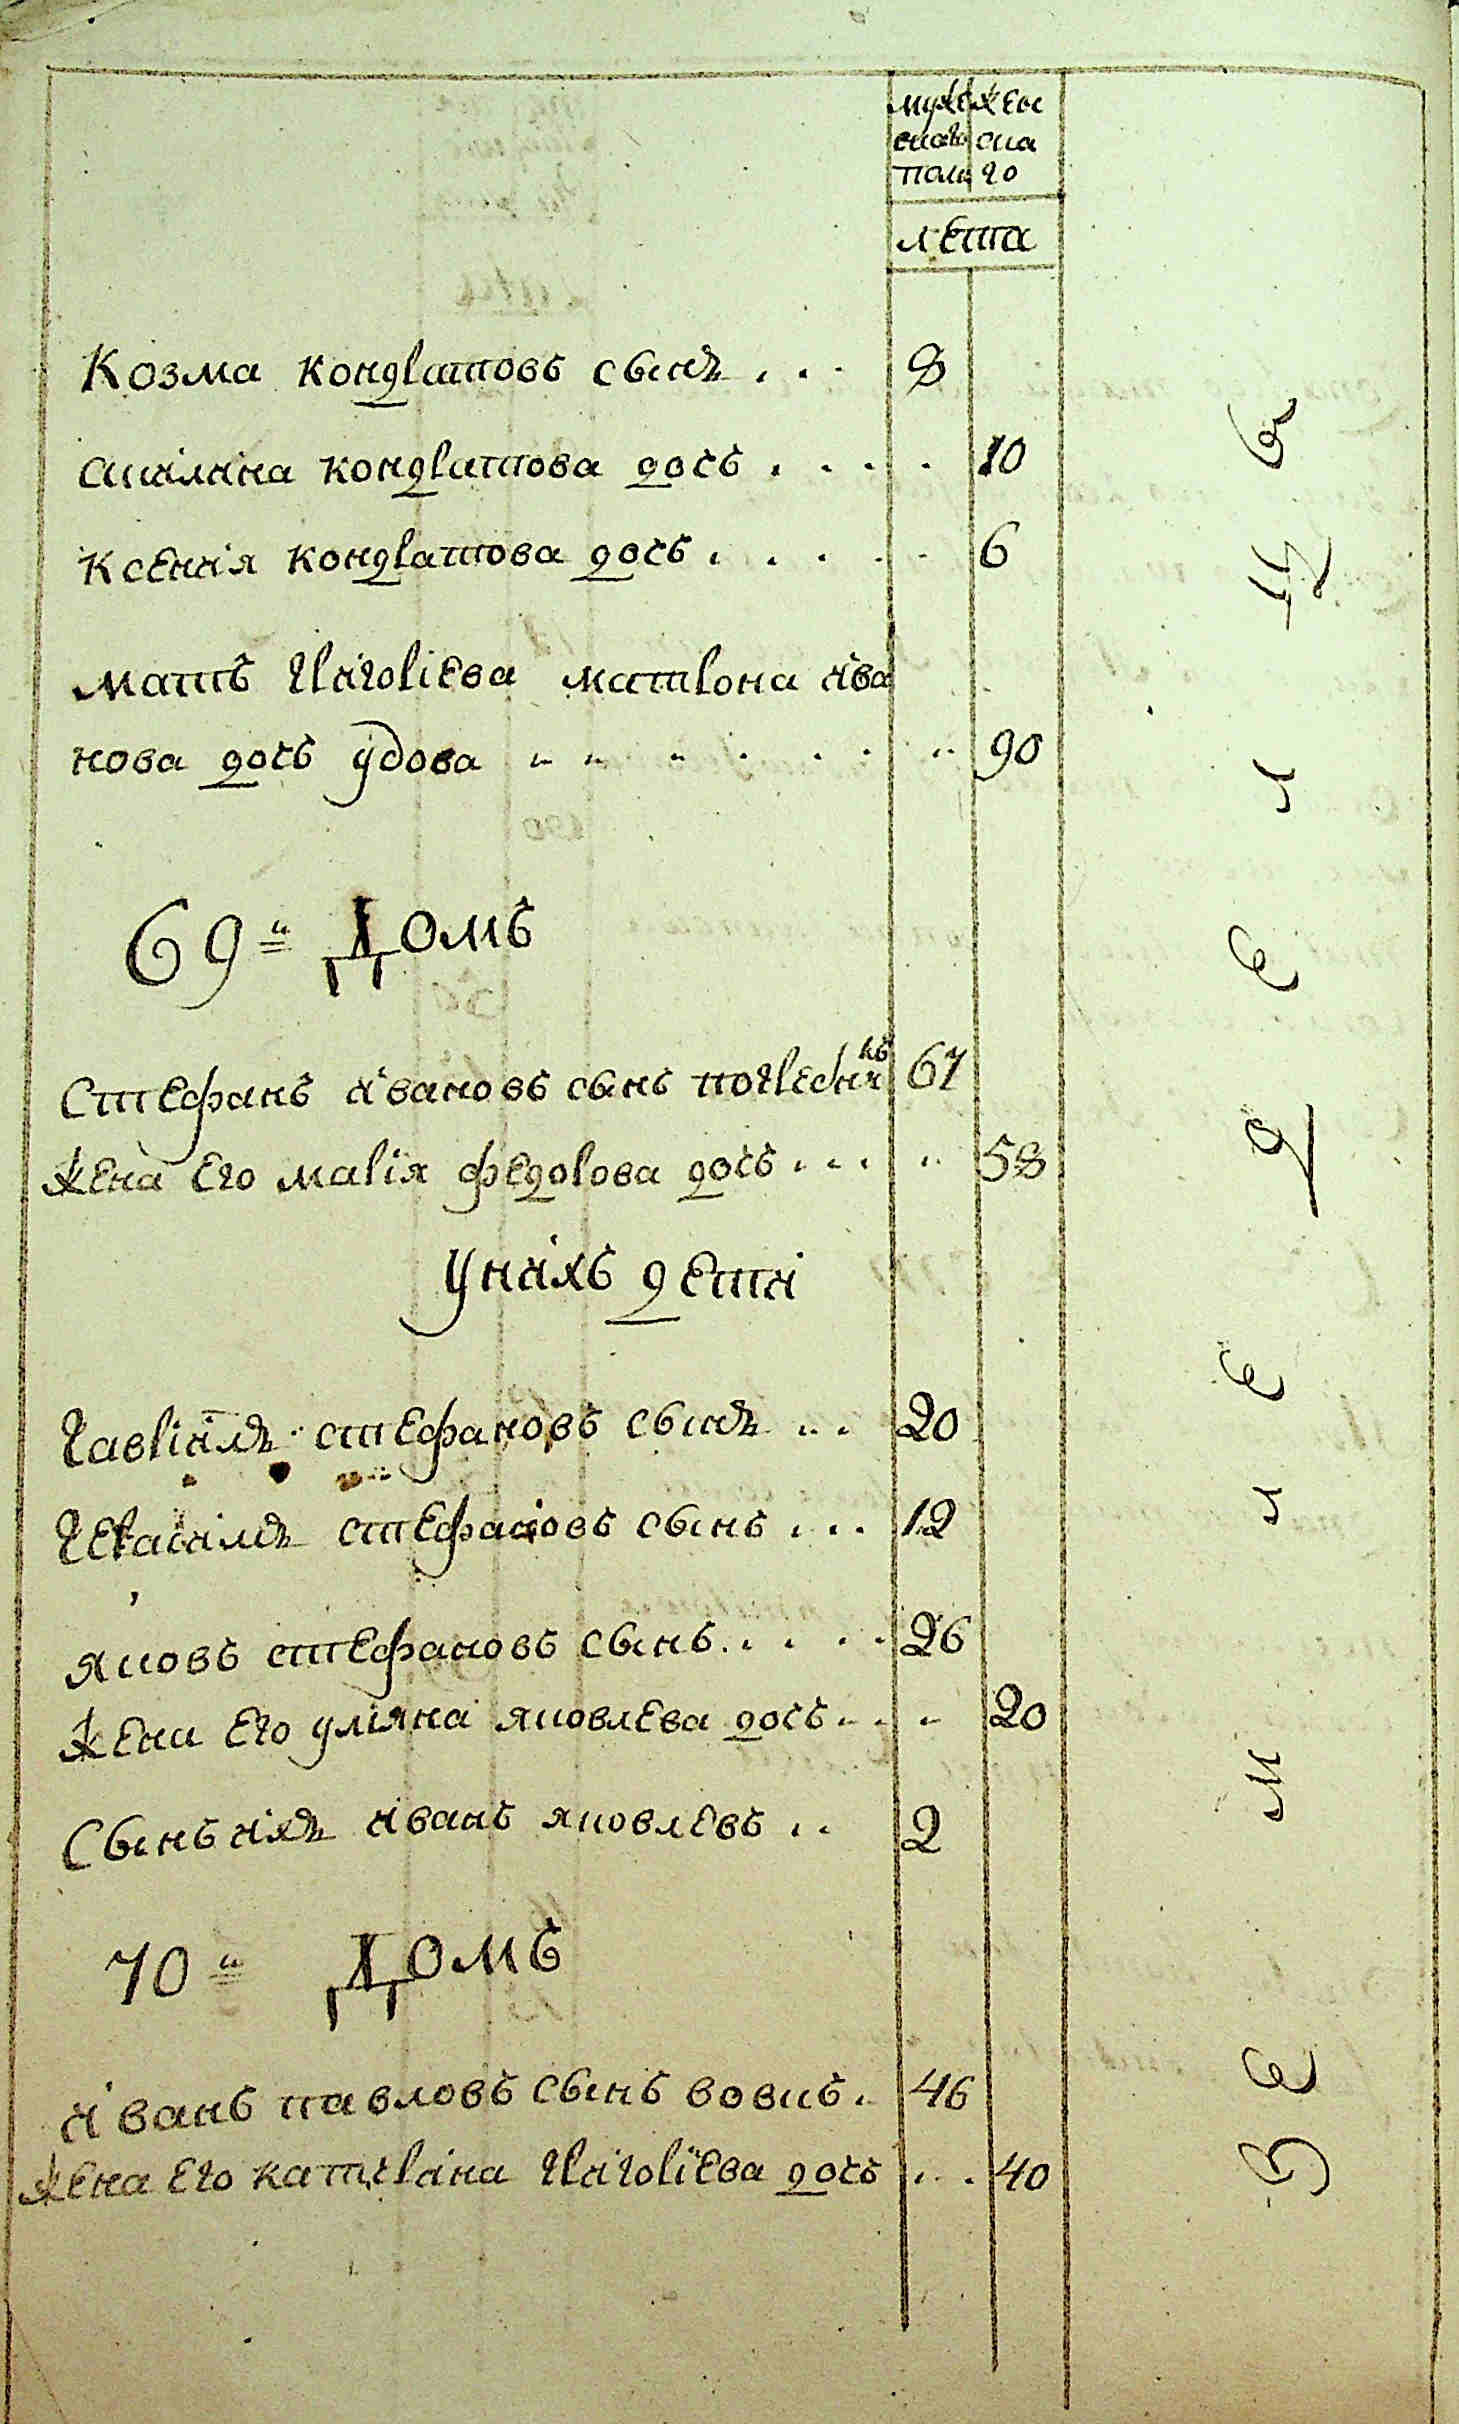 мужеска полу
женска го
лета
Козма кондратовъ сынъ . . . 8
Акилина кондратова дочь . . . . 10
ксенія кондратова дочь . . . . . 6
мать григоріева матрона ива
нова дочь удова . . . . . . . 90
69й Домъ
Стефанъ ивановъ сынъ 67
жена его марія федорова дочь . . . . 58
У нихъ дети
Гавріилъ стефановъ сынъ . . 20
Герасимъ стефановъ сынъ . . . 12
яковъ стефановъ сынъ . . . . 26
жена его уліяна яковлева дочь . . . 20
Сынъ ихъ иванъ яковлевъ . . 2
70й Домъ
иванъ павловъ сынъ вовкъ . 46
жена его катерина григоріева дочь . . . 40
земледелцы